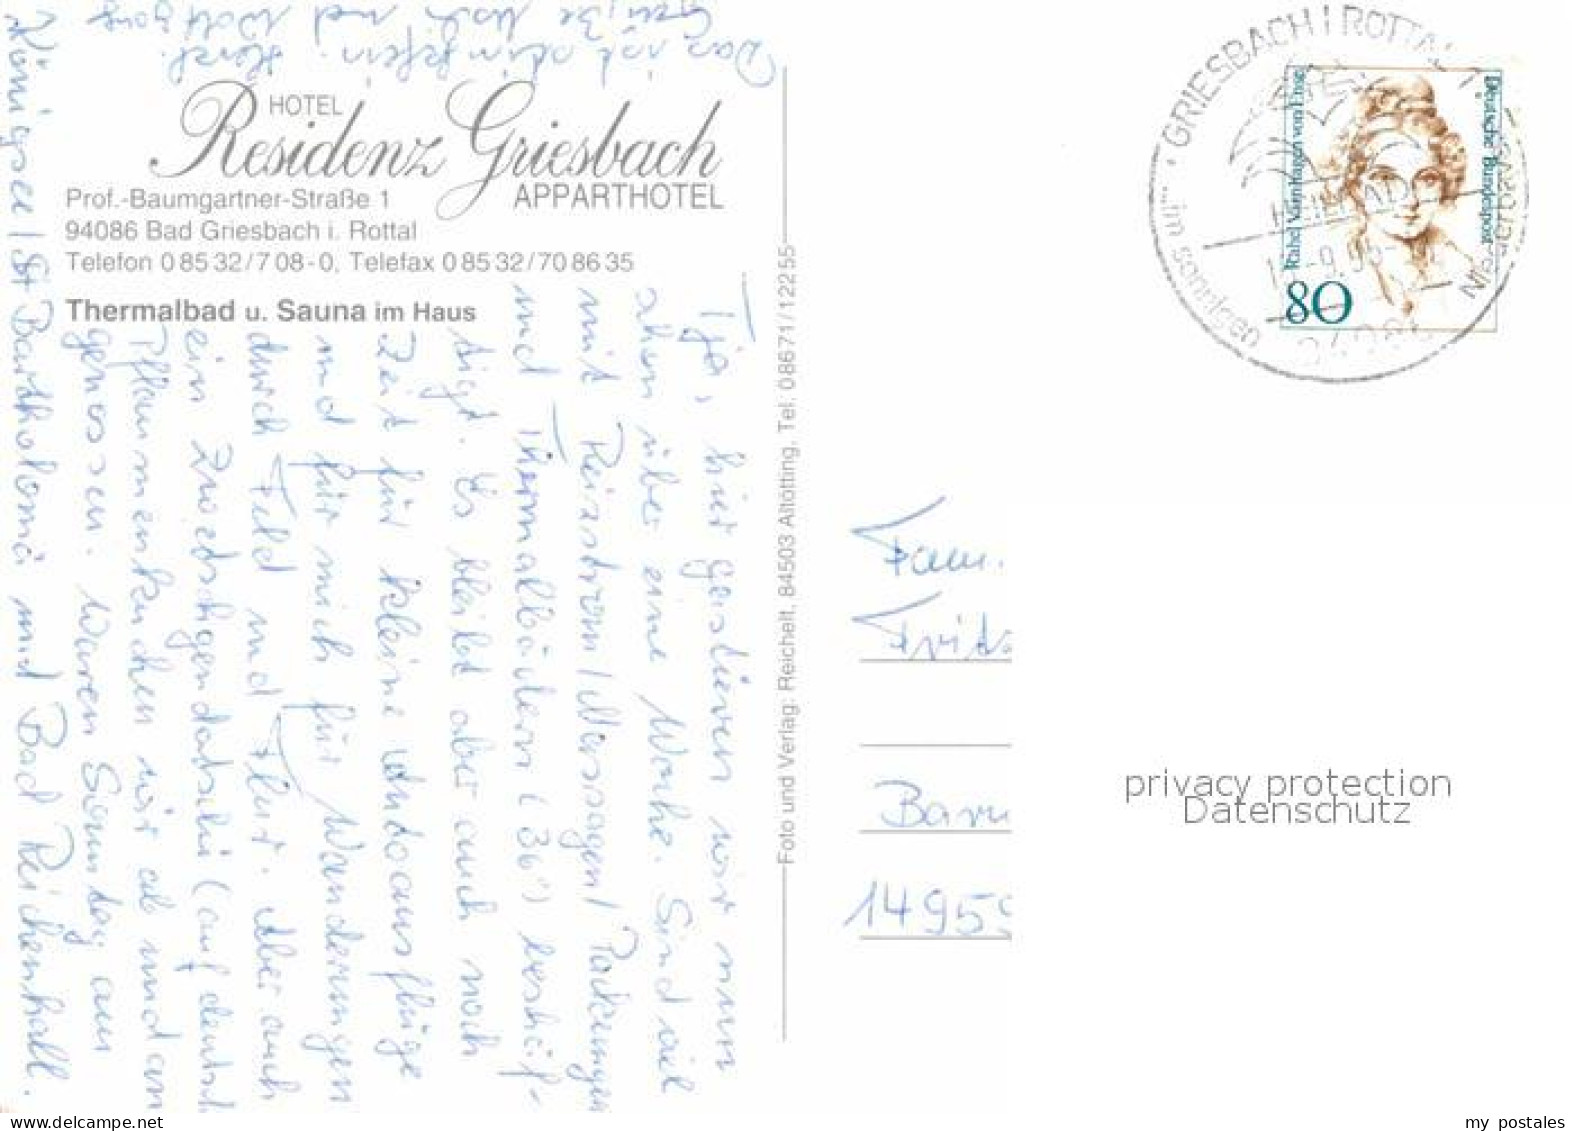 HOTEL
Residenz Griesbach
APPARTHOTEL
Prof.-Baumgartner-Straße 1
94086 Bad Griesbach i. Rottal
Telefon 0 85 32/7 08-0, Telefax 0 85 32/70 86 35
Thermalbad u. Sauna im Haus
Tja, hier gastieren wir nun
schon über eine Woche. Sind viel
mit Reizstrom/Massagen/Packungen
und Thermalbädern (36°) beschäf-
tigt. Es bleibt aber auch noch
Zeit für kleine Autoausflüge
und für mich für Wanderungen
durch Feld und Flur. Aber auch
ein Zwetschgendatschi (auf deutsch
Pflaumenkuchen wir ab und an
genossen. Waren Sonntag am
Königsee/St Bartholomä und Bad Reichenhall.
Das ist prima
Grüße Euch und Wolfgang
Horst
Foto und Verlag: Reichelt, 84503 Altötting, Tel. 08671/12255
GRIESBACH I ROTTAL
im sonnigen
NIEDERBAYERN
HEILBAD
94086
Deutsche Bundespost
Rahel Varnhagen von Ense
80
Fam.
Fritz
Baru
1495
privacy protection
Datenschutz
my postales